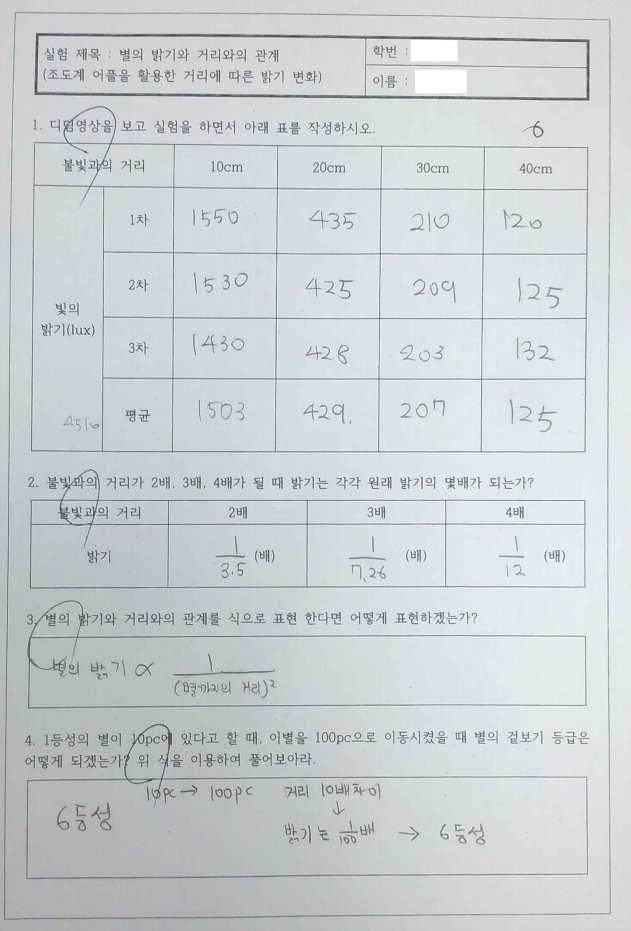 실험 제목 : 별의 밝기와 거리와의 관계
(조도계 어플을 활용한 거리에 따른 밝기 변화)
학번 :
이름 :
1. 디덤영상을 보고 실험을 하면서 아래 표를 작성하시오.
6
불빛과의 거리 10cm 20cm 30cm 40cm
빛의 밝기(lux)
1차 1550 435 210 120
2차 1530 425 209 125
3차 1430 428 203 132
평균 1503 429. 207 125
4510
2. 불빛과의 거리가 2배, 3배, 4배가 될 때 밝기는 각각 원래 밝기의 몇배가 되는가?
불빛과의 거리 2배 3배 4배
밝기 1/3.5 (배) 1/7.26 (배) 1/12 (배)
3. 별의 밝기와 거리와의 관계를 식으로 표현 한다면 어떻게 표현하겠는가?
별의 밝기 ∝ 1/(별까지의 거리)²
4. 1등성의 별이 10pc에 있다고 할 때, 이별을 100pc으로 이동시켰을 때 별의 겉보기 등급은
어떻게 되겠는가? 위 식을 이용하여 풀어보아라.
10pc → 100pc 거리 10배차이
↓
6등성
밝기는 1/100배 → 6등성